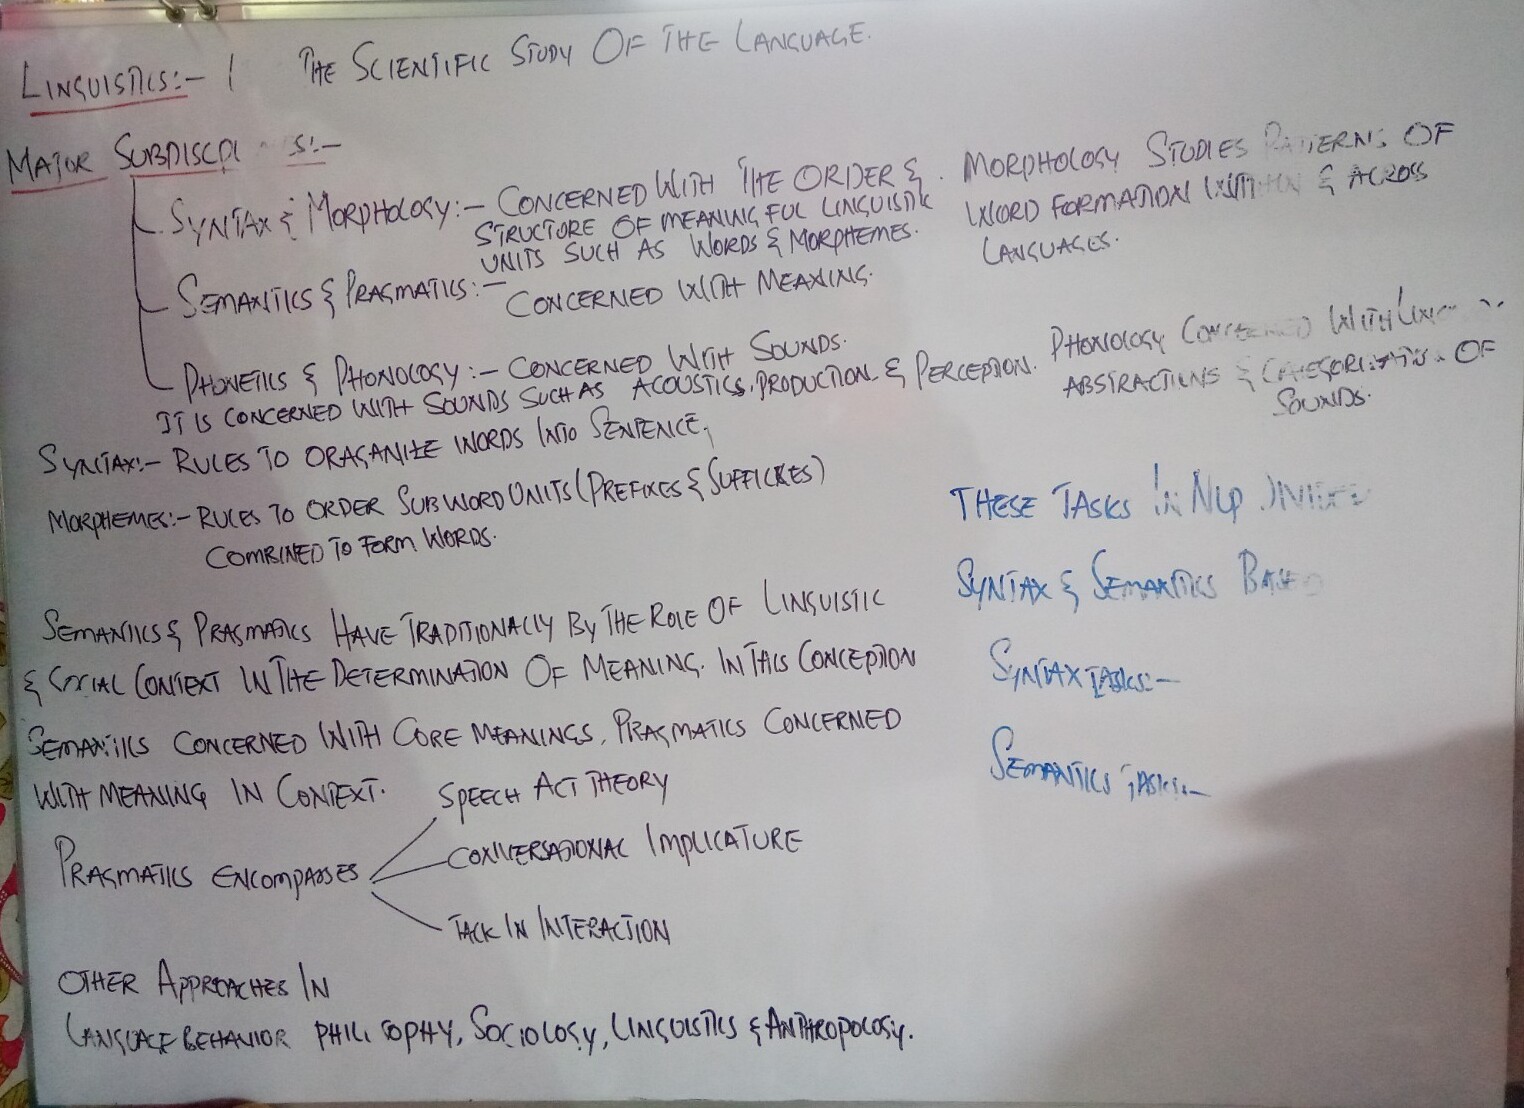 LINGUISTICS:- THE SCIENTIFIC STUDY OF THE LANGUAGE.
MAJOR
SYNTAX & MORPHOLOGY:- CONCERNED WITH THE ORDER &
STRUCTURE OF MEANINGFUL LINGUISTIC
UNITS SUCH AS WORDS & MORPHEMES.
MORPHOLOGY STUDIES PATTERNS OF
WORD FORMATION WITHIN & ACROSS
LANGUAGES.
SEMANTICS & PRAGMATICS:- CONCERNED WITH MEANING.
PHONETICS & PHONOLOGY:- CONCERNED WITH SOUNDS.
IT IS CONCERNED WITH SOUNDS SUCH AS ACOUSTICS, PRODUCTION & PERCEPTION.
PHONOLOGY CONCERNED WITH
ABSTRACTIONS & CATEGORIZATION OF
SOUNDS.
SYNTAX:- RULES TO ORAGANIZE WORDS INTO SENTENCE,
MORPHEMES:- RULES TO ORDER SUBWORD UNITS (PREFIXES & SUFFICKES)
COMBINED TO FORM WORDS.
SEMANTICS & PRAGMATICS HAVE TRADITIONALLY BY THE ROLE OF LINGUISTIC
& SOCIAL CONTEXT IN THE DETERMINATION OF MEANING. IN THIS CONCEPTION
SEMANTICS CONCERNED WITH CORE MEANINGS, PRAGMATICS CONCERNED
WITH MEANING IN CONTEXT.
PRAGMATICS ENCOMPASSES
SPEECH ACT THEORY
CONVERSATIONAL IMPLICATURE
TALK IN INTERACTION
OTHER APPROACHES IN
LANGUAGE BEHAVIOR PHILISOPHY, SOCIOLOGY, LINGUISTICS & ANTHROPOLOGY.
THESE TASKS IN NLP DIVIDED
SYNTAX & SEMANTICS BASED
SYNTAX TASKS:-
SEMANTICS TASKS:-